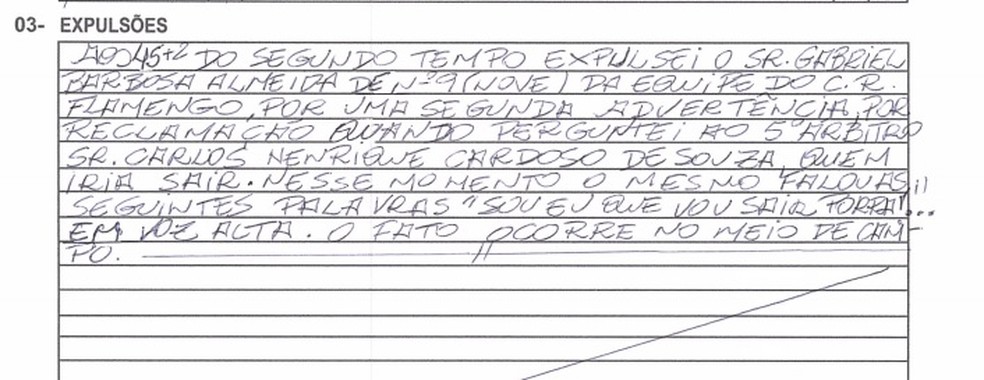 03- EXPULSÕES
AOS 45+2 DO SEGUNDO TEMPO EXPULSEI O SR. GABRIEL
BARBOSA ALMEIDA DE Nº 9 (NOVE) DA EQUIPE DO C.R.
FLAMENGO, POR UMA SEGUNDA ADVERTÊNCIA, POR
RECLAMAÇÃO QUANDO PERGUNTEI AO 5º ARBITRO
SR. CARLOS HENRIQUE CARDOSO DE SOUZA, QUEM
IRIA SAIR. NESSE MOMENTO O MESMO FALOU AS
SEGUINTES PALAVRAS "SOU EU QUE VOU SAIR PORRA!"...
EM VOZ ALTA. O FATO OCORRE NO MEIO DE CAM-
PO.